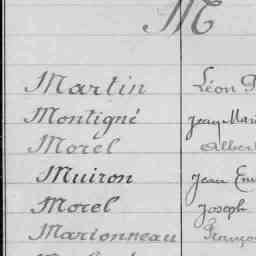 M
Martin Léon
Montigné Jean Marie
Morel Albert
Muiron Jean
Morel Joseph
Marionneau